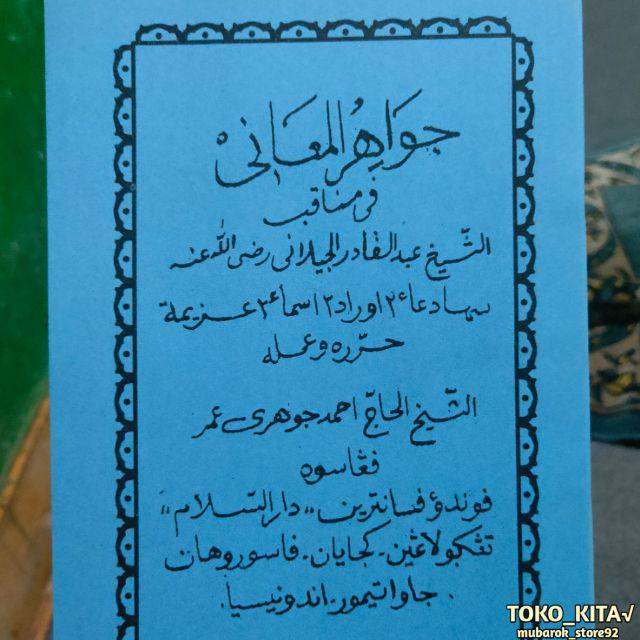 جَوَاهِرُ الْمَعَانِيْ
فى مناقب
الشّيخ عبد القادر الجيلانى رضى الله عنه
سهادعاء٢ اوراد٢ اسماء٣ عزيمة
حرّره وعمله
الشّيخ الحاجّ احمد جوهرى عمر
ڤڠاسوه
ڤوندوء ڤسانترين "دار السّلام"
تڠكولاڠين - كجايان - ڤاسوروهان
جاوا تيمور - اندونيسيا.
TOKO_KITA√
mubarok_store92